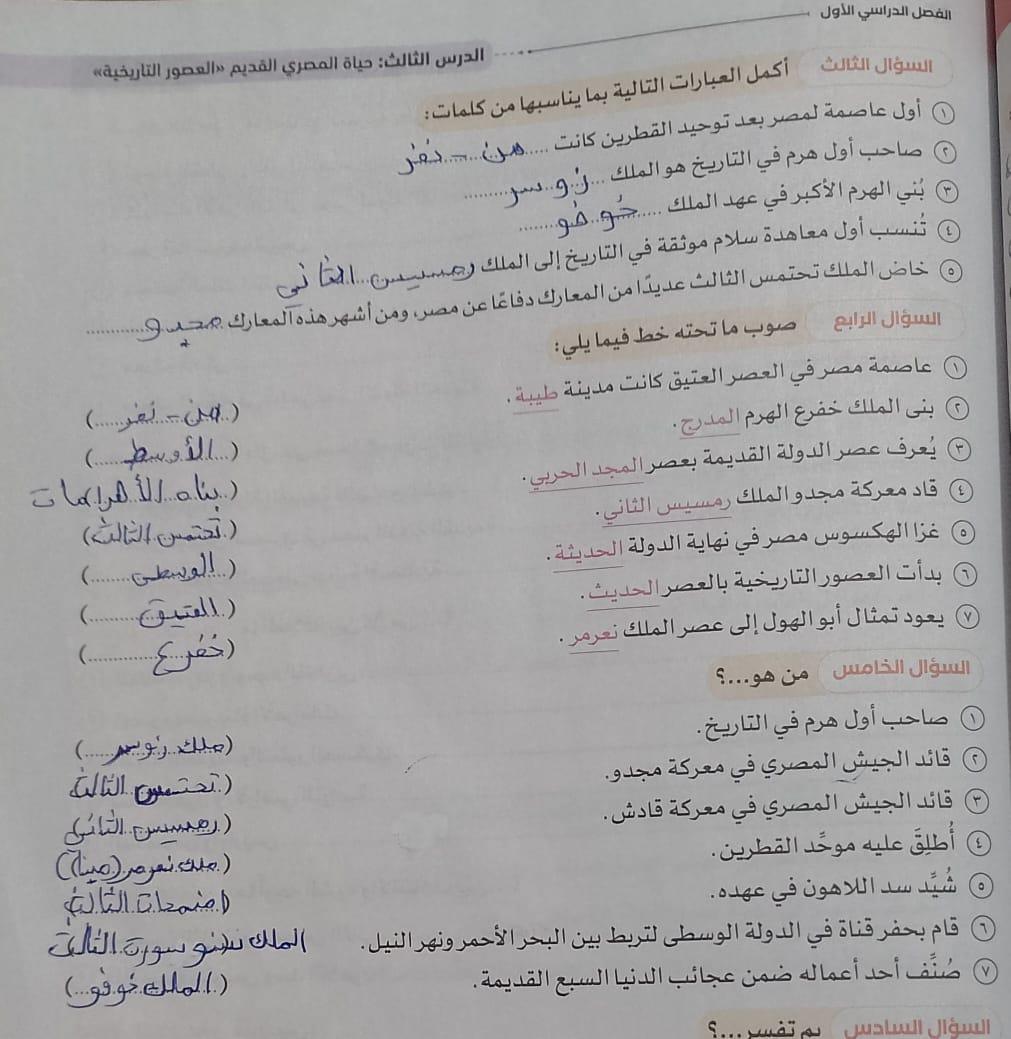 الفصل الدراسي الأول
الدرس الثالث: حياة المصري القديم «العصور التاريخية»
السؤال الثالث أكمل العبارات التالية بما يناسبها من كلمات:
١ أول عاصمة لمصر بعد توحيد القطرين كانت ..... من - نفر
٢ صاحب أول هرم في التاريخ هو الملك ... زوسر ...
٣ بُني الهرم الأكبر في عهد الملك ..... خوفو .....
٤ تُنسب أول معاهدة سلام موثقة في التاريخ إلى الملك رمسيس الثاني
٥ خاض الملك تحتمس الثالث عديدًا من المعارك دفاعًا عن مصر، ومن أشهر هذه المعارك مجدو .....
السؤال الرابع صوب ما تحته خط فيما يلي:
١ عاصمة مصر في العصر العتيق كانت مدينة طيبة. (من - نفر)
٢ بنى الملك خفرع الهرم المدرج. (الأوسط)
٣ يُعرف عصر الدولة القديمة بعصر المجد الحربي. (بناه الأهرامات
٤ قاد معركة مجدو الملك رمسيس الثاني. (تحتمس الثالث)
٥ غزا الهكسوس مصر في نهاية الدولة الحديثة. (الوسطى)
٦ بدأت العصور التاريخية بالعصر الحديث. (العتيق)
٧ يعود تمثال أبو الهول إلى عصر الملك نعرمر. (خفرع)
السؤال الخامس من هو...؟
١ صاحب أول هرم في التاريخ. (ملك زوسر)
٢ قائد الجيش المصري في معركة مجدو. (تحتمس الثالث
٣ قائد الجيش المصري في معركة قادش. (رمسيس الثاني
٤ أُطلِقَ عليه موحِّد القطرين. (ملك نعرمر (مينا)
٥ شُيِّد سد اللاهون في عهده. (امنمحات الثالث
٦ قام بحفر قناة في الدولة الوسطى لتربط بين البحر الأحمر ونهر النيل. الملك سنوسورت الثالث
٧ صُنِّف أحد أعماله ضمن عجائب الدنيا السبع القديمة. (الملك خوفو)
السؤال السادس بم تفسر...؟